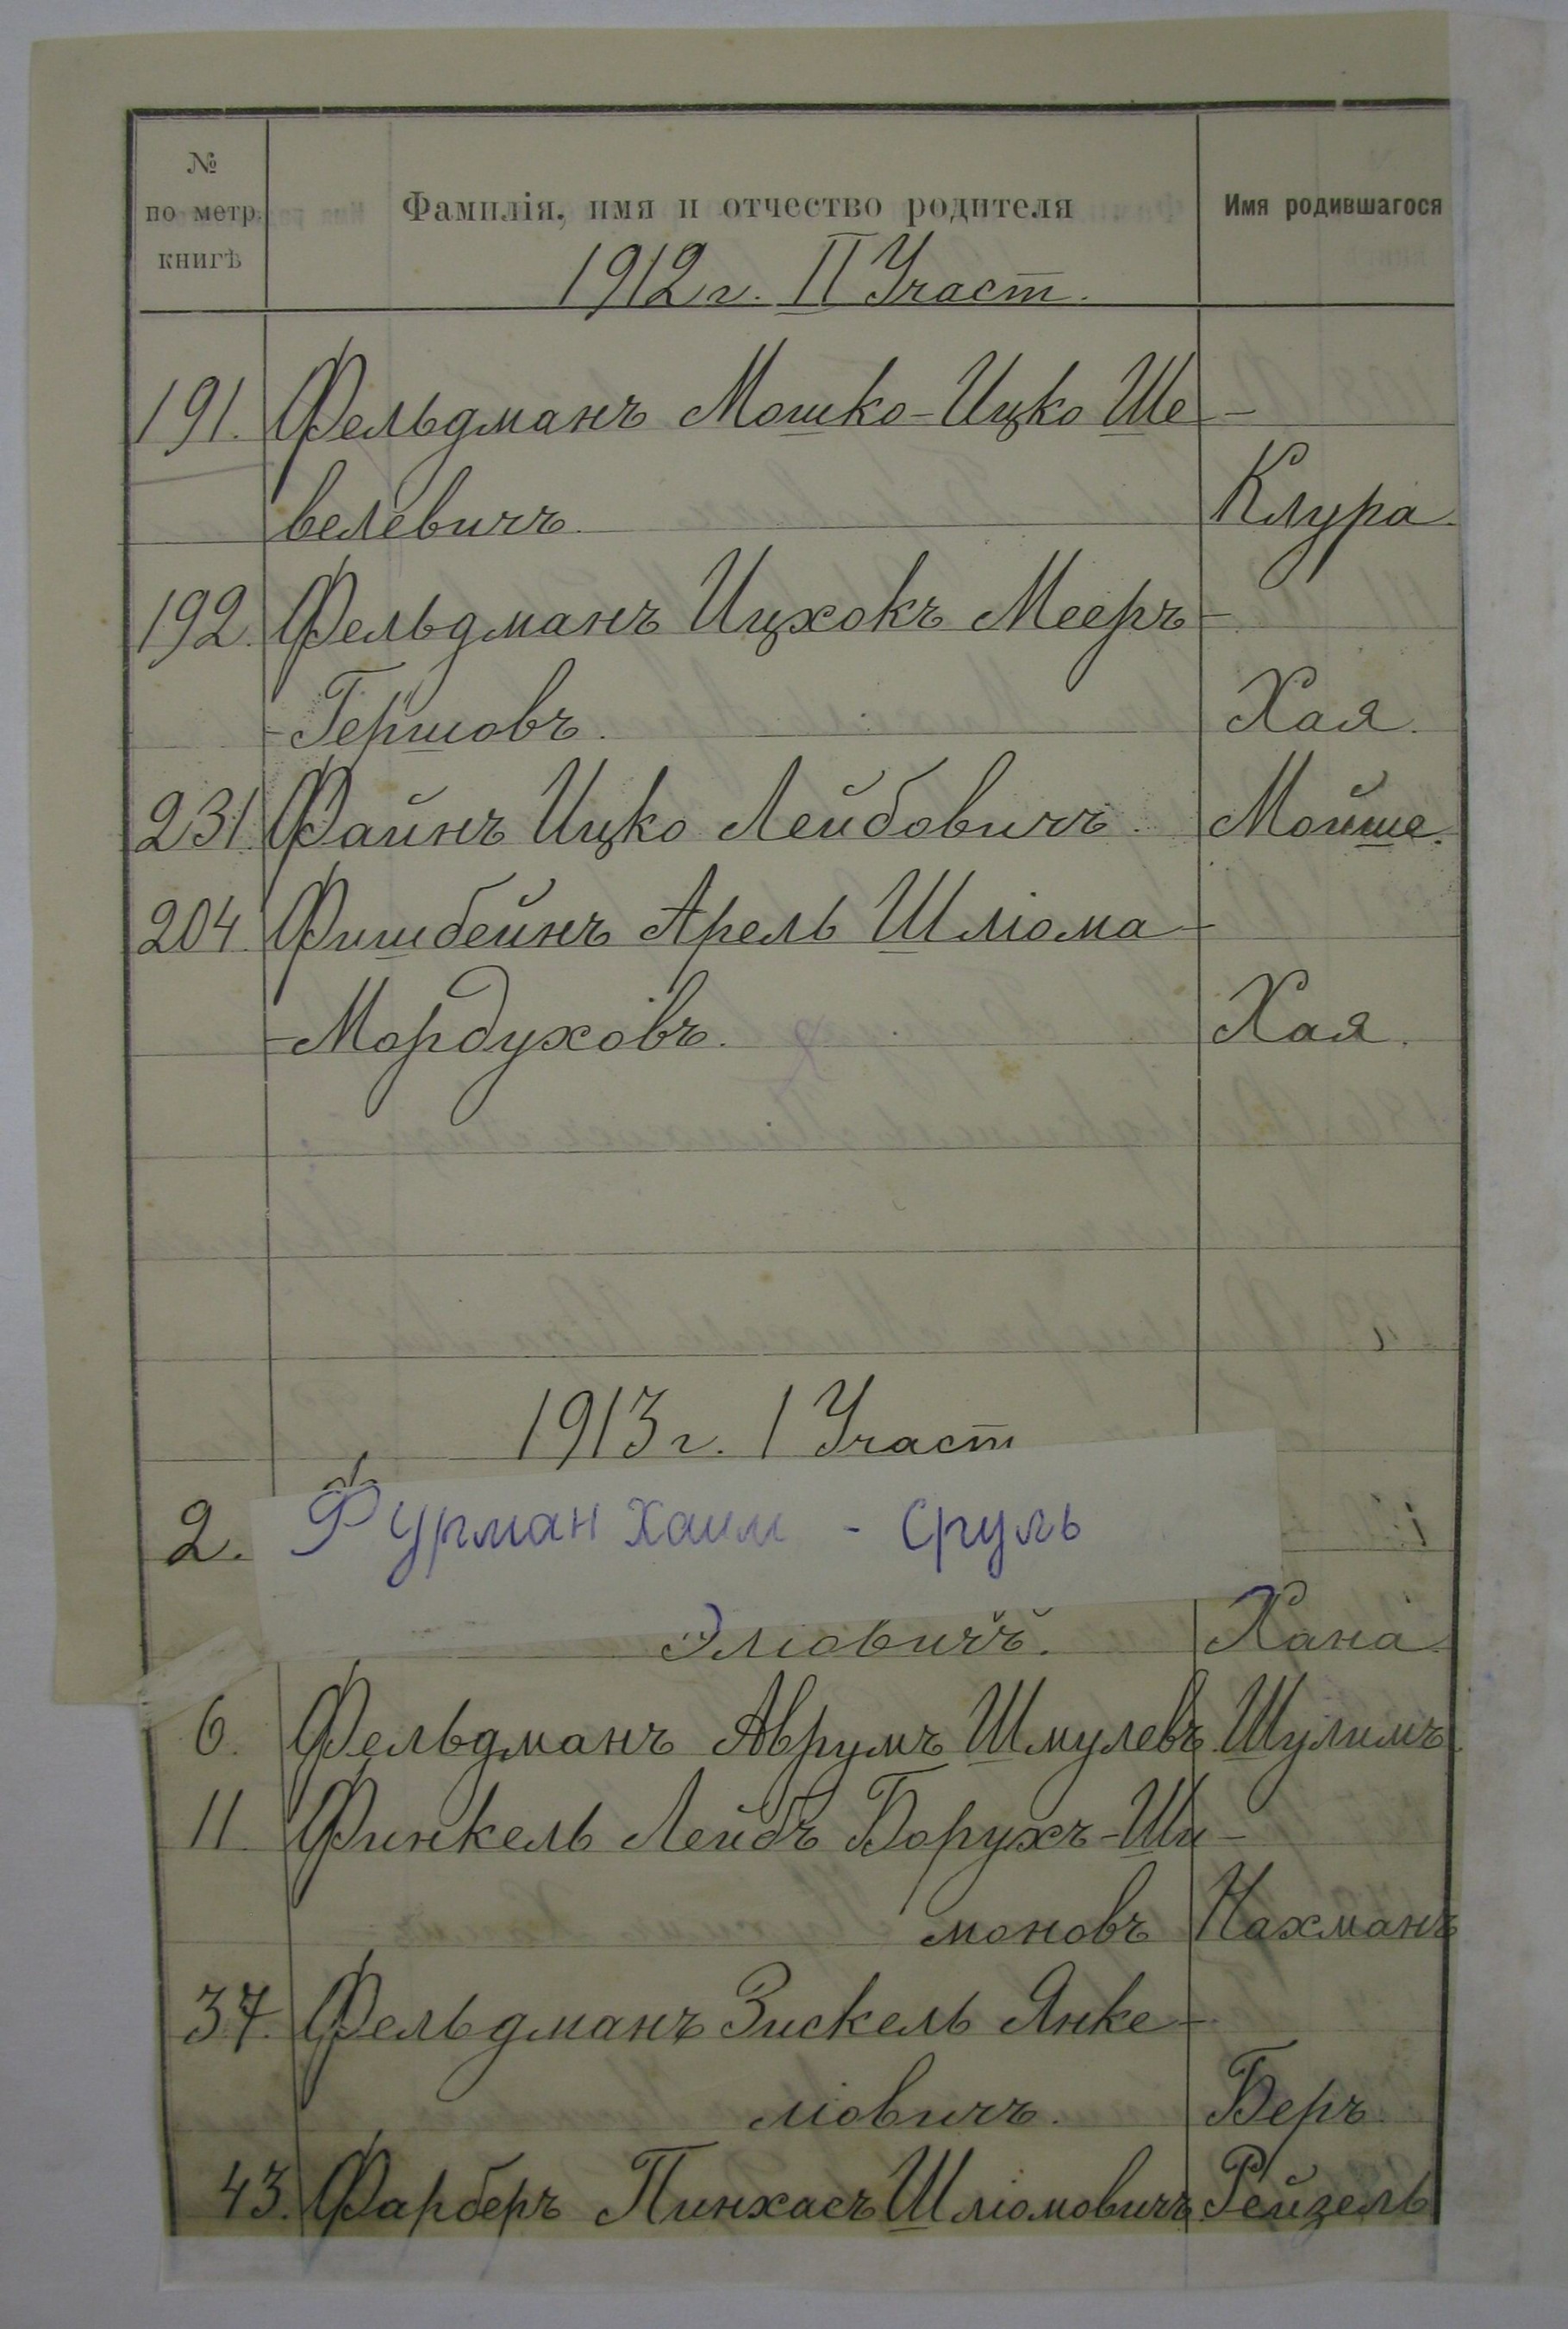 №
по метр.
книгѣ
Фамилія, имя и отчество родителя
Имя родившагося
1912 г. II Участ.
191. Фельдманъ Мошко-Ицко Ше-
велевичъ. Клура.
192. Фельдманъ Ицхокъ Мееръ-
-Гершовъ. Хая.
231. Файнъ Ицко Лейбовичъ. Мойше.
204. Фишбейнъ Арель Шліома-
-Мордуховъ. Хая.
1913 г. 1 Участ
2. Фурман Хаим - Сруль
Эліовичъ. Хана
6. Фельдманъ Аврумъ Шмулевъ Шулимъ.
11. Финкель Лейбъ Борухъ-Ши-
моновъ Нахманъ
37. Фельдманъ Зискель Янке-
ліовичъ. Беръ.
43. Фарберъ Пинхасъ Шліомовичъ Рейзель